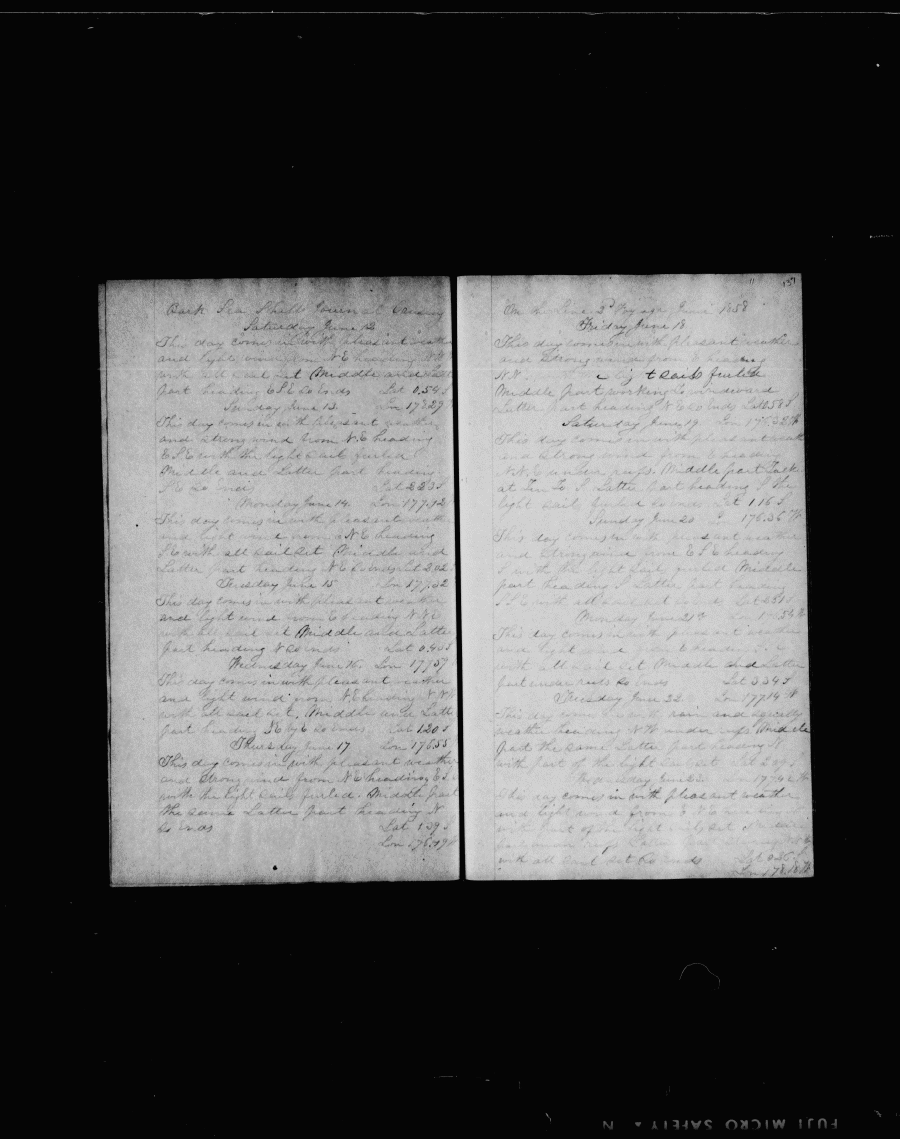 Bark Sea Shell Journal Cruising
Saturday June 12
This day comes in with pleasant weather
and light wind from N.E heading N.W
with all sail set Middle and Latter
part heading E.S.E So ends Lat 0.54 S
Sunday June 13 Lon 177.29
This day comes in with pleasant weather
and strong wind from N.E heading
E.S.E with the light sails furled
Middle and Latter part heading
S.E So ends Lat 2.23 S
Monday June 14 Lon 177.42
This day comes in with pleasant weather
and light wind from N.E heading
S.E with all sail set Middle and
Latter part heading N.E So ends Lat 2.02 S
Tuesday June 15 Lon 177.32
This day comes in with pleasant weather
and light wind from E heading N.N.E
with all sail set Middle and Latter
part heading N So ends Lat 0.40 S
Wednesday June 16 Lon 177.57
This day comes in with pleasant weather
and light wind from N.E heading N.N.W
with all sail set, Middle and Latter
part heading S.E by E So ends Lat 1.20 S
Thursday June 17 Lon 176.55
This day comes in with pleasant weather
and strong wind from N.E heading E.S.E
with the light sails furled. Middle part
the same Latter part heading N
So ends Lat 1.39 S
Lon 176.19 W
137
On the Line 2d Voyage June 1858
Friday June 18
This day comes in with pleasant weather
and strong wind from E heading
N.W light sails furled
Middle part working to windward
Latter part heading N.E So ends Lat 0.58 S
Saturday June 19 Lon 176.32 W
This day comes in with pleasant weather
and strong wind from E heading
N.N.E under reefs. Middle part Tacked
at Ten to S. Latter part heading S the
light sails furled So ends Lat 1.16 S
Sunday June 20 Lon 176.36 W
This day comes in with pleasant weather
and strong wind from E.S.E heading
S with the light sails furled Middle
part heading S Latter part heading
S.S.E with all sail set So ends Lat 2.51 S
Monday June 21st
This day comes in with pleasant weather
and light wind from E heading
with all sail set Middle and Latter
part under reefs So ends Lat 3.34 S
Tuesday June 22 Lon 177.14 W
This day comes in with rain and squally
weather heading N.W under reefs Middle
part the same Latter part heading N
with part of the light sails set Lat 2.09 S
Wednesday June 23 Lon 177.42 W
This day comes in with pleasant weather
and light wind from E.N.E
with part of the light sails set Middle
part under reefs Latter part
with all sail set So ends Lat 0.36 S
Lon 178.18 W
FUJI MICRO SAFETY ▲ N